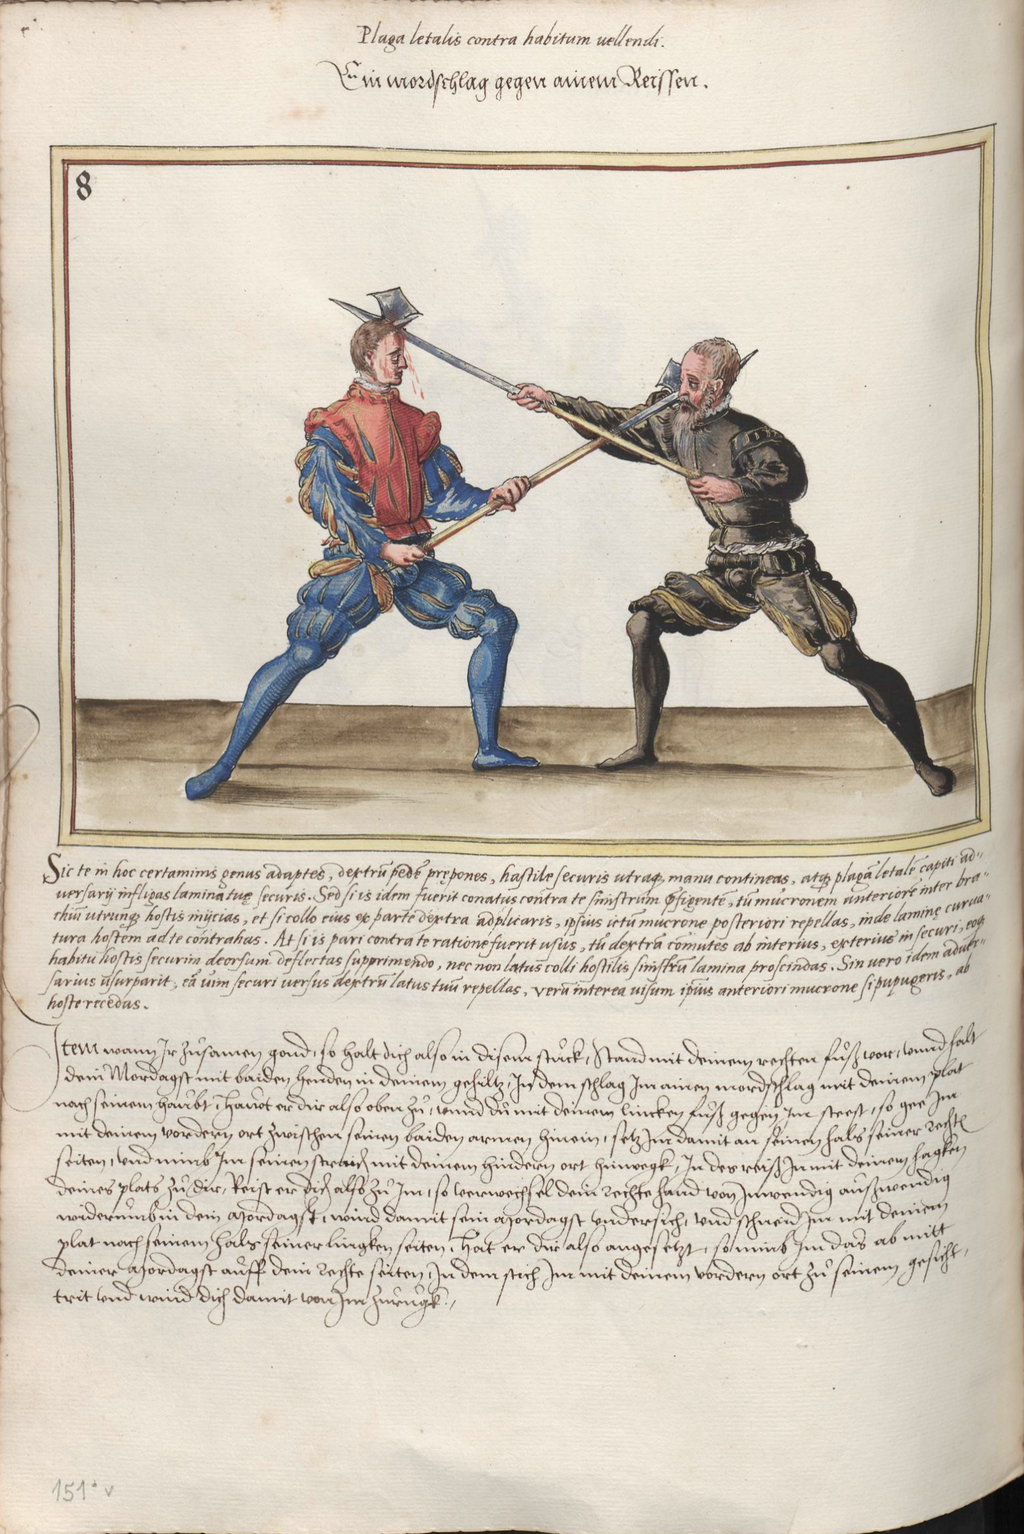 Plaga letalis contra habitum uellendi.
Ein mordschlag gegen ainem Reissen.
8
Sic te in hoc certaminis genus adaptes, dextrū pedē prępones, hastilę securis utraq; manu contineas, atq; plagā letalē capiti ad-
uersarij infligas lamina tuę securis. Sed si is idem fuerit conatus contra te sinistrum p̄figente, tū mucronem anteriorē inter bra-
chiū utrunq; hostis inijcias, et si collo eius ex parte dextra adplicaris, ipsius ictū mucrone posteriori repellas, inde laminę curua-
tura hostem ad te contrahas. At si is pari contra te ratione fuerit usus, tū dextrā comutes ab interius, exterius in securi, eoq;
habitu hostis securim deorsum deflectas supprimendo, nec non latus colli hostilis sinistrū lamina proscindas. Sin uero idem aduer-
sarius usurparit, eā uim securi uersus dextrū latus tuū repellas, uerū interea uisum ipsius anteriori mucrone si pupugeris, ab
hoste recedas.
Item wann Ir zusamen gond, so halt dich also in disem stuck, Stand mit deinem rechten fuß vor, vnnd halt
dein Mordagst mit baiden henden in deinem gehiltz, In dem schlag Im ainen mordschlag mit deinem plat
nach seinem haubt, Hauwt er dir also oben zu, vnnd du mit deinem lincken fuß gegen Im steest, so gee Im
mit deinem vordern ort zwischen seinen baiden armen hinein, setz Im damit an seinen hals seiner recht
seiten, vnd nimb Im seinen straich mit deinem hindern ort hinwegk, In des reiß In mit deinem hagken
deines plats zu dir, Reist er dich also zu Im, so verwechsel dein rechte hand von Inwendig außwendig
widerumb in dein Mordagst, wind damit sein Mordagst vndersich, vnd schneid Im mit deinem
plat nach seinem hals seiner lingken seiten, Hat er dir also angesetzt, so nimb Im das ab mitt
deiner Mordagst auff dein rechte seiten, In dem stich Im mit deinem vordern ort zu seinem gesicht,
trit vnd wind dich damit von Im zurugk.
151* v